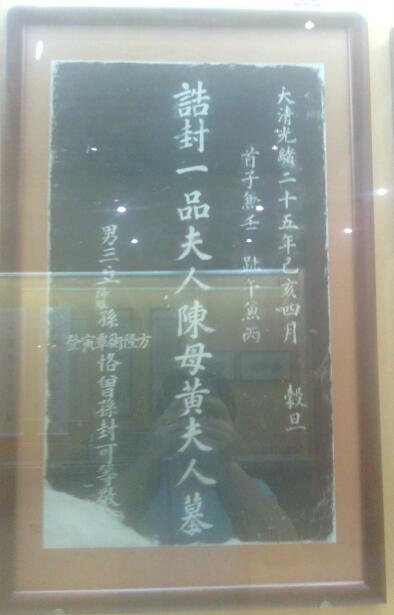 大清光緒二十五年己亥四月 穀旦
首子兼壬 趾午兼丙
誥封一品夫人陳母黃夫人墓
男三立 孫
方隆衡覃寅登
恪曾孫封可等敬